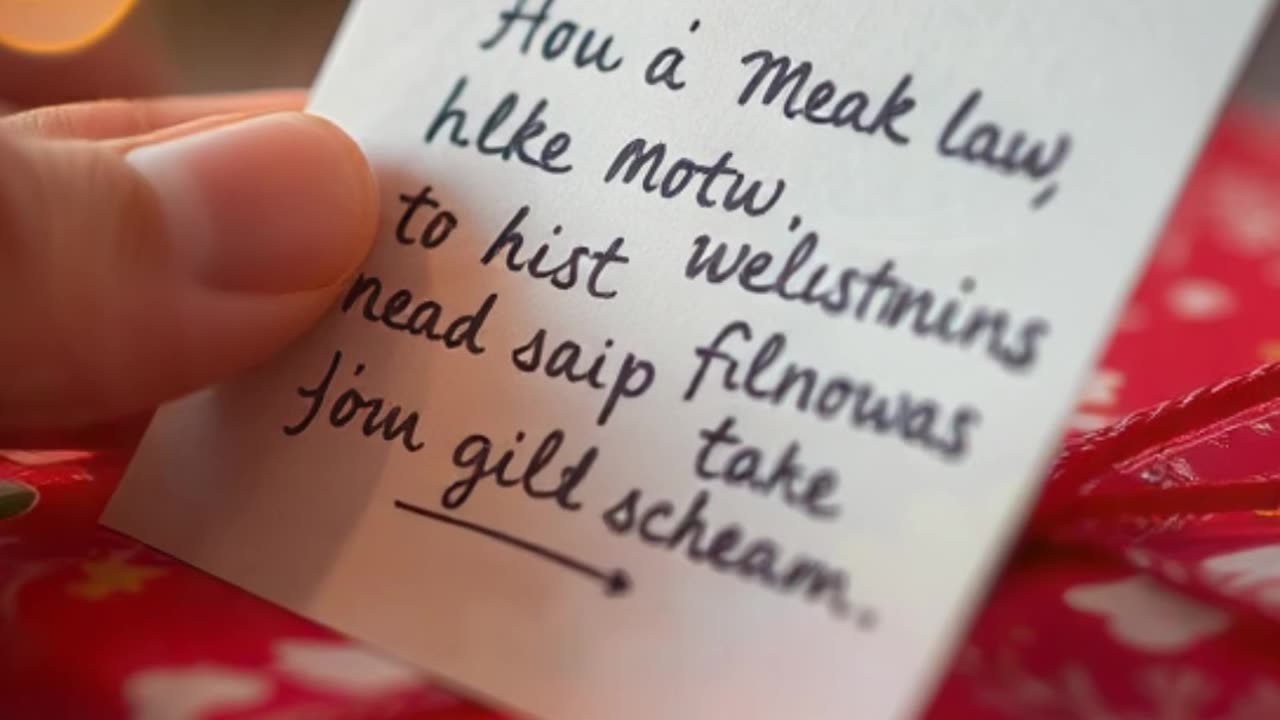 Hou á Meak law,
hlke motw.
to hist welistmins
nead saip filnowas
jóın take
gild scheam.